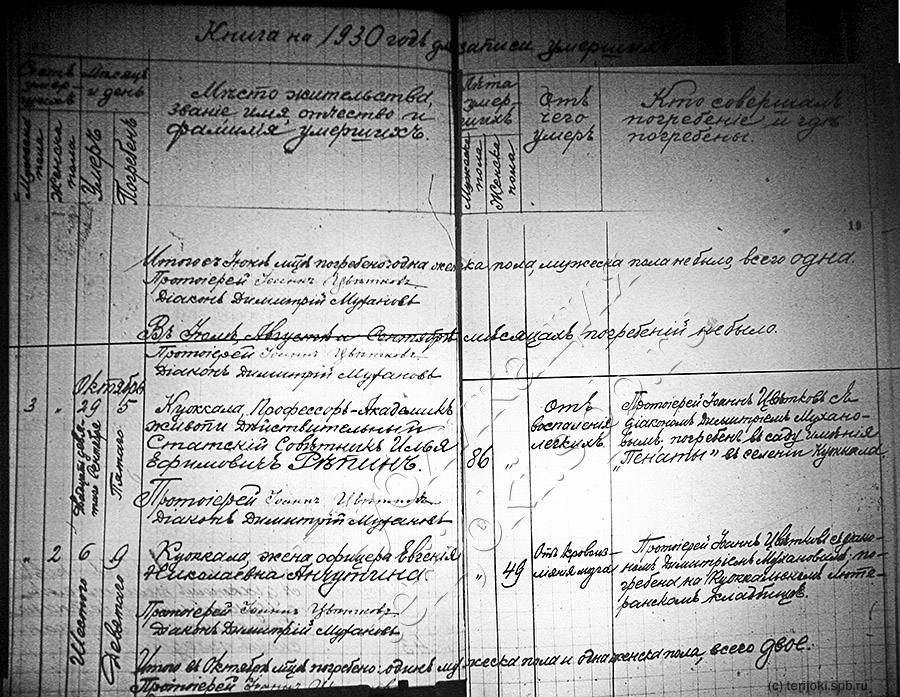 Книга на 1930 годъ для записи умершихъ
Счетъ умершихъ
Мужеска пола
Женска пола
Мѣсяцъ и день
Умеръ
Погребенъ
Мѣсто жительства,
званіе имя, отчество и
фамилія умершихъ.
Лѣта умершихъ
Мужеска пола
Женска пола
Отъ
чего
умеръ
Кто совершалъ
погребеніе и гдѣ
погребены.
19
Итого въ Іюнѣ м-цѣ погребено: одна женска пола мужеска пола не было, всего одна
Протоіерей Іоаннъ Цвѣтковъ
Діаконъ Димитрій Мухановъ
Въ Іюлѣ, Августѣ и Сентябрѣ мѣсяцахъ погребеній не было.
Протоіерей Іоаннъ Цвѣтковъ
Діаконъ Димитрій Мухановъ
Октября
3 " 29 5 Куоккала, Профессоръ-Академикъ
живопи Дѣйствительный
Статскій Совѣтникъ Илья
Ефимовичъ Рѣпинъ.
Двадцать девятого Сентября
Пятаго
86 "
Отъ
воспаленія
легкихъ
Протоіерей Іоаннъ Цвѣтковъ съ
діакономъ Димитріемъ Мухано-
вымъ погребенъ въ саду имѣнія
„Пенаты" въ селеніи Куоккала.
Протоіерей Іоаннъ Цвѣтковъ
Діаконъ Димитрій Мухановъ
" 2 6 9 Куоккала, жена офицера Евгенія
Николаевна Анчутина
Шестого
Девятаго
" 49
Отъ кровоиз-
ліянія мозга
Протоіерей Іоаннъ Цвѣтковъ съ діако-
номъ Димитріемъ Мухановымъ по-
гребена на Куоккальскомъ Люте-
ранскомъ кладбищѣ.
Протоіерей Іоаннъ Цвѣтковъ
Діаконъ Димитрій Мухановъ
Итого въ Октябрѣ м-цѣ погребено: одинъ мужеска пола и одна женска пола, всего двое.
Протоіерей Іоаннъ Цвѣтковъ
(c) terijoki.spb.ru